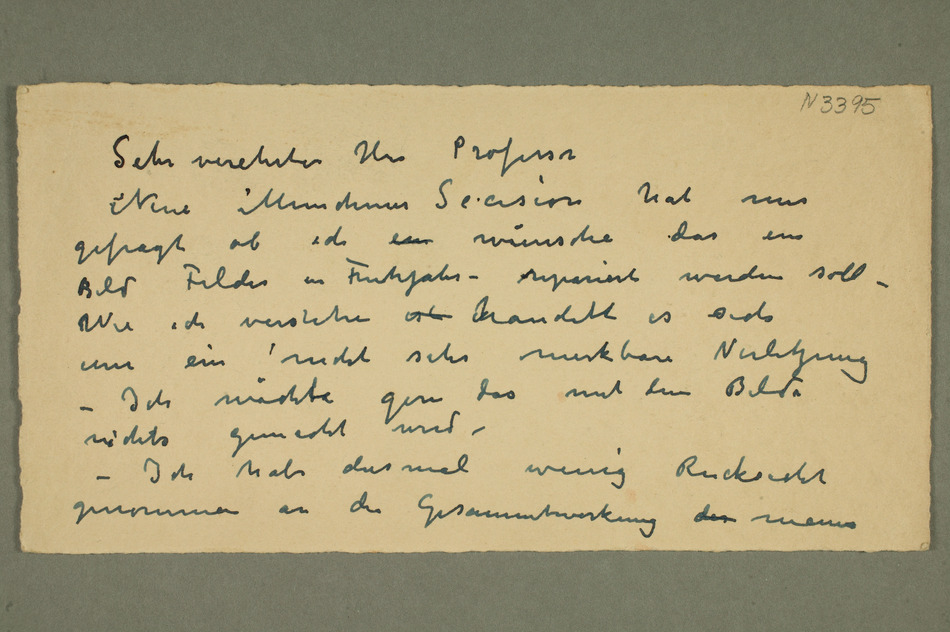 N3395
Sehr verehrter Herr Professor
Neue Münchener Secision hat mir
gefragt ob ich ein wünsche das ein
Bild Felder im Frühjahr – repariert werden soll –
Wie ich verstehe ist handelt es sich
um ein nicht sehr merkbare Verletzung
– Ich möchte gern das mit dem Bilde
nichts gemacht wird –
– Ich habe diesmal wenig Rücksicht
genommen an die Gesammtwirkung der meine